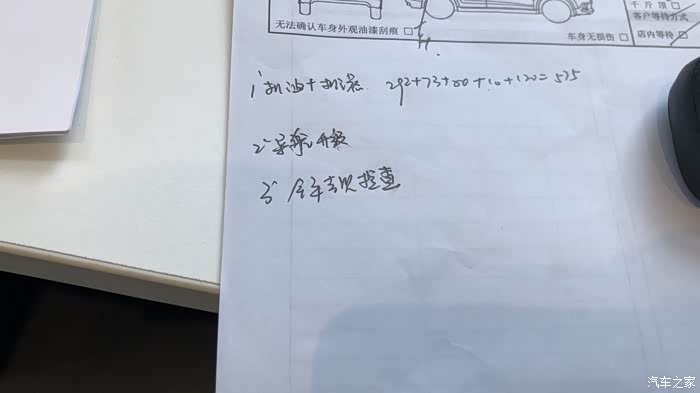 千斤顶□
客户等待方式
无法确认车身外观油漆刮痕 □
车身无损伤 □
店内等待 □
1 机油+机滤 292+73+80+10+120=575
2 导航升级
3 全车索赔检查
汽车之家